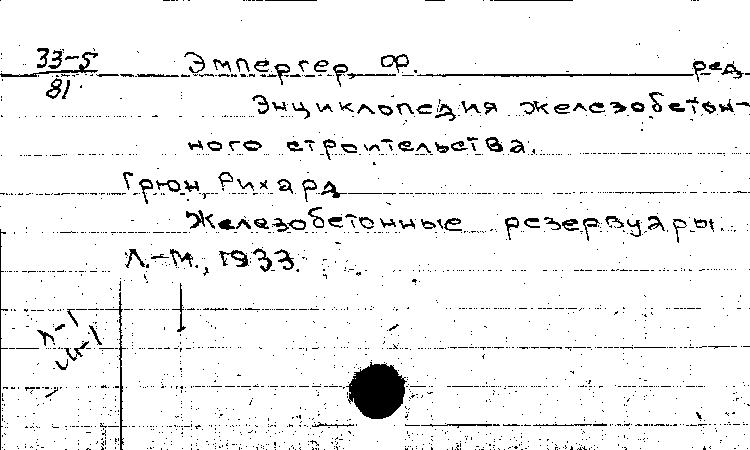 33-5 Эмпергер, Ф. ред.
81
Энциклопедия железобетон-
ного строительства.
Грюн, Рихард
Железобетонные резервуары.
Л.-М., 1933.
л-1
м-1